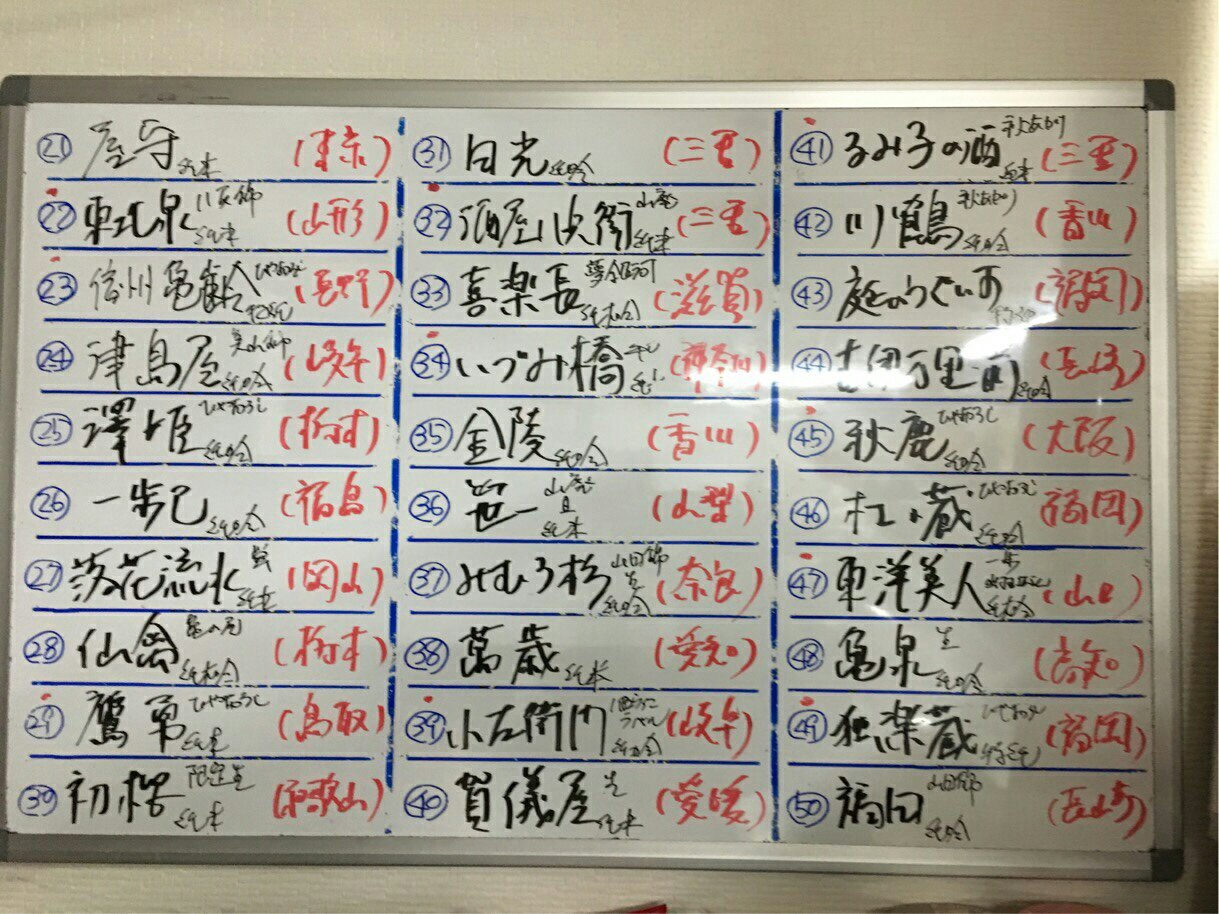 ㉑ 屋守 純米 (東京)
㉒ 東北泉 純米 (山形)
㉓ 信州亀齢 ひやおろし (長野)
㉔ 津島屋 純吟 (岐阜)
㉕ 澤姫 ひやおろし 純吟 (栃木)
㉖ 一歩己 純吟 (福島)
㉗ 落花流水 純米 (岡山)
㉘ 仙禽 亀の尾 純大吟 (栃木)
㉙ 鷹勇 ひやおろし 純米 (鳥取)
㉚ 初桜 限定生 純米 (和歌山)
㉛ 日光 純吟 (三重)
㉜ 酒屋八兵衛 山廃 純米 (三重)
㉝ 喜楽長 夢銀河 純大吟 (滋賀)
㉞ いづみ橋 (神奈川)
㉟ 金陵 純吟 (香川)
㊱ 笹一 山廃 純米 (山梨)
㊲ みむろ杉 山田錦 生 純吟 (奈良)
㊳ 萬歳 純米 (愛知)
㊴ 小左衛門 純吟 (岐阜)
㊵ 賀儀屋 生 純米 (愛媛)
㊶ るみ子の酒 秋あがり 純米 (三重)
㊷ 川鶴 秋あがり 純吟 (香川)
㊸ 庭のうぐいす (福岡)
㊹ 古伊万里 前 純吟 (長崎)
㊺ 秋鹿 ひやおろし 純吟 (大阪)
㊻ 杜の蔵 ひやおろし 純吟 (福岡)
㊼ 東洋美人 一歩 純大吟 (山口)
㊽ 亀泉 生 純吟 (高知)
㊾ 独楽蔵 ひやおろし 特純 (福岡)
㊿ 福田 山田錦 純吟 (長崎)